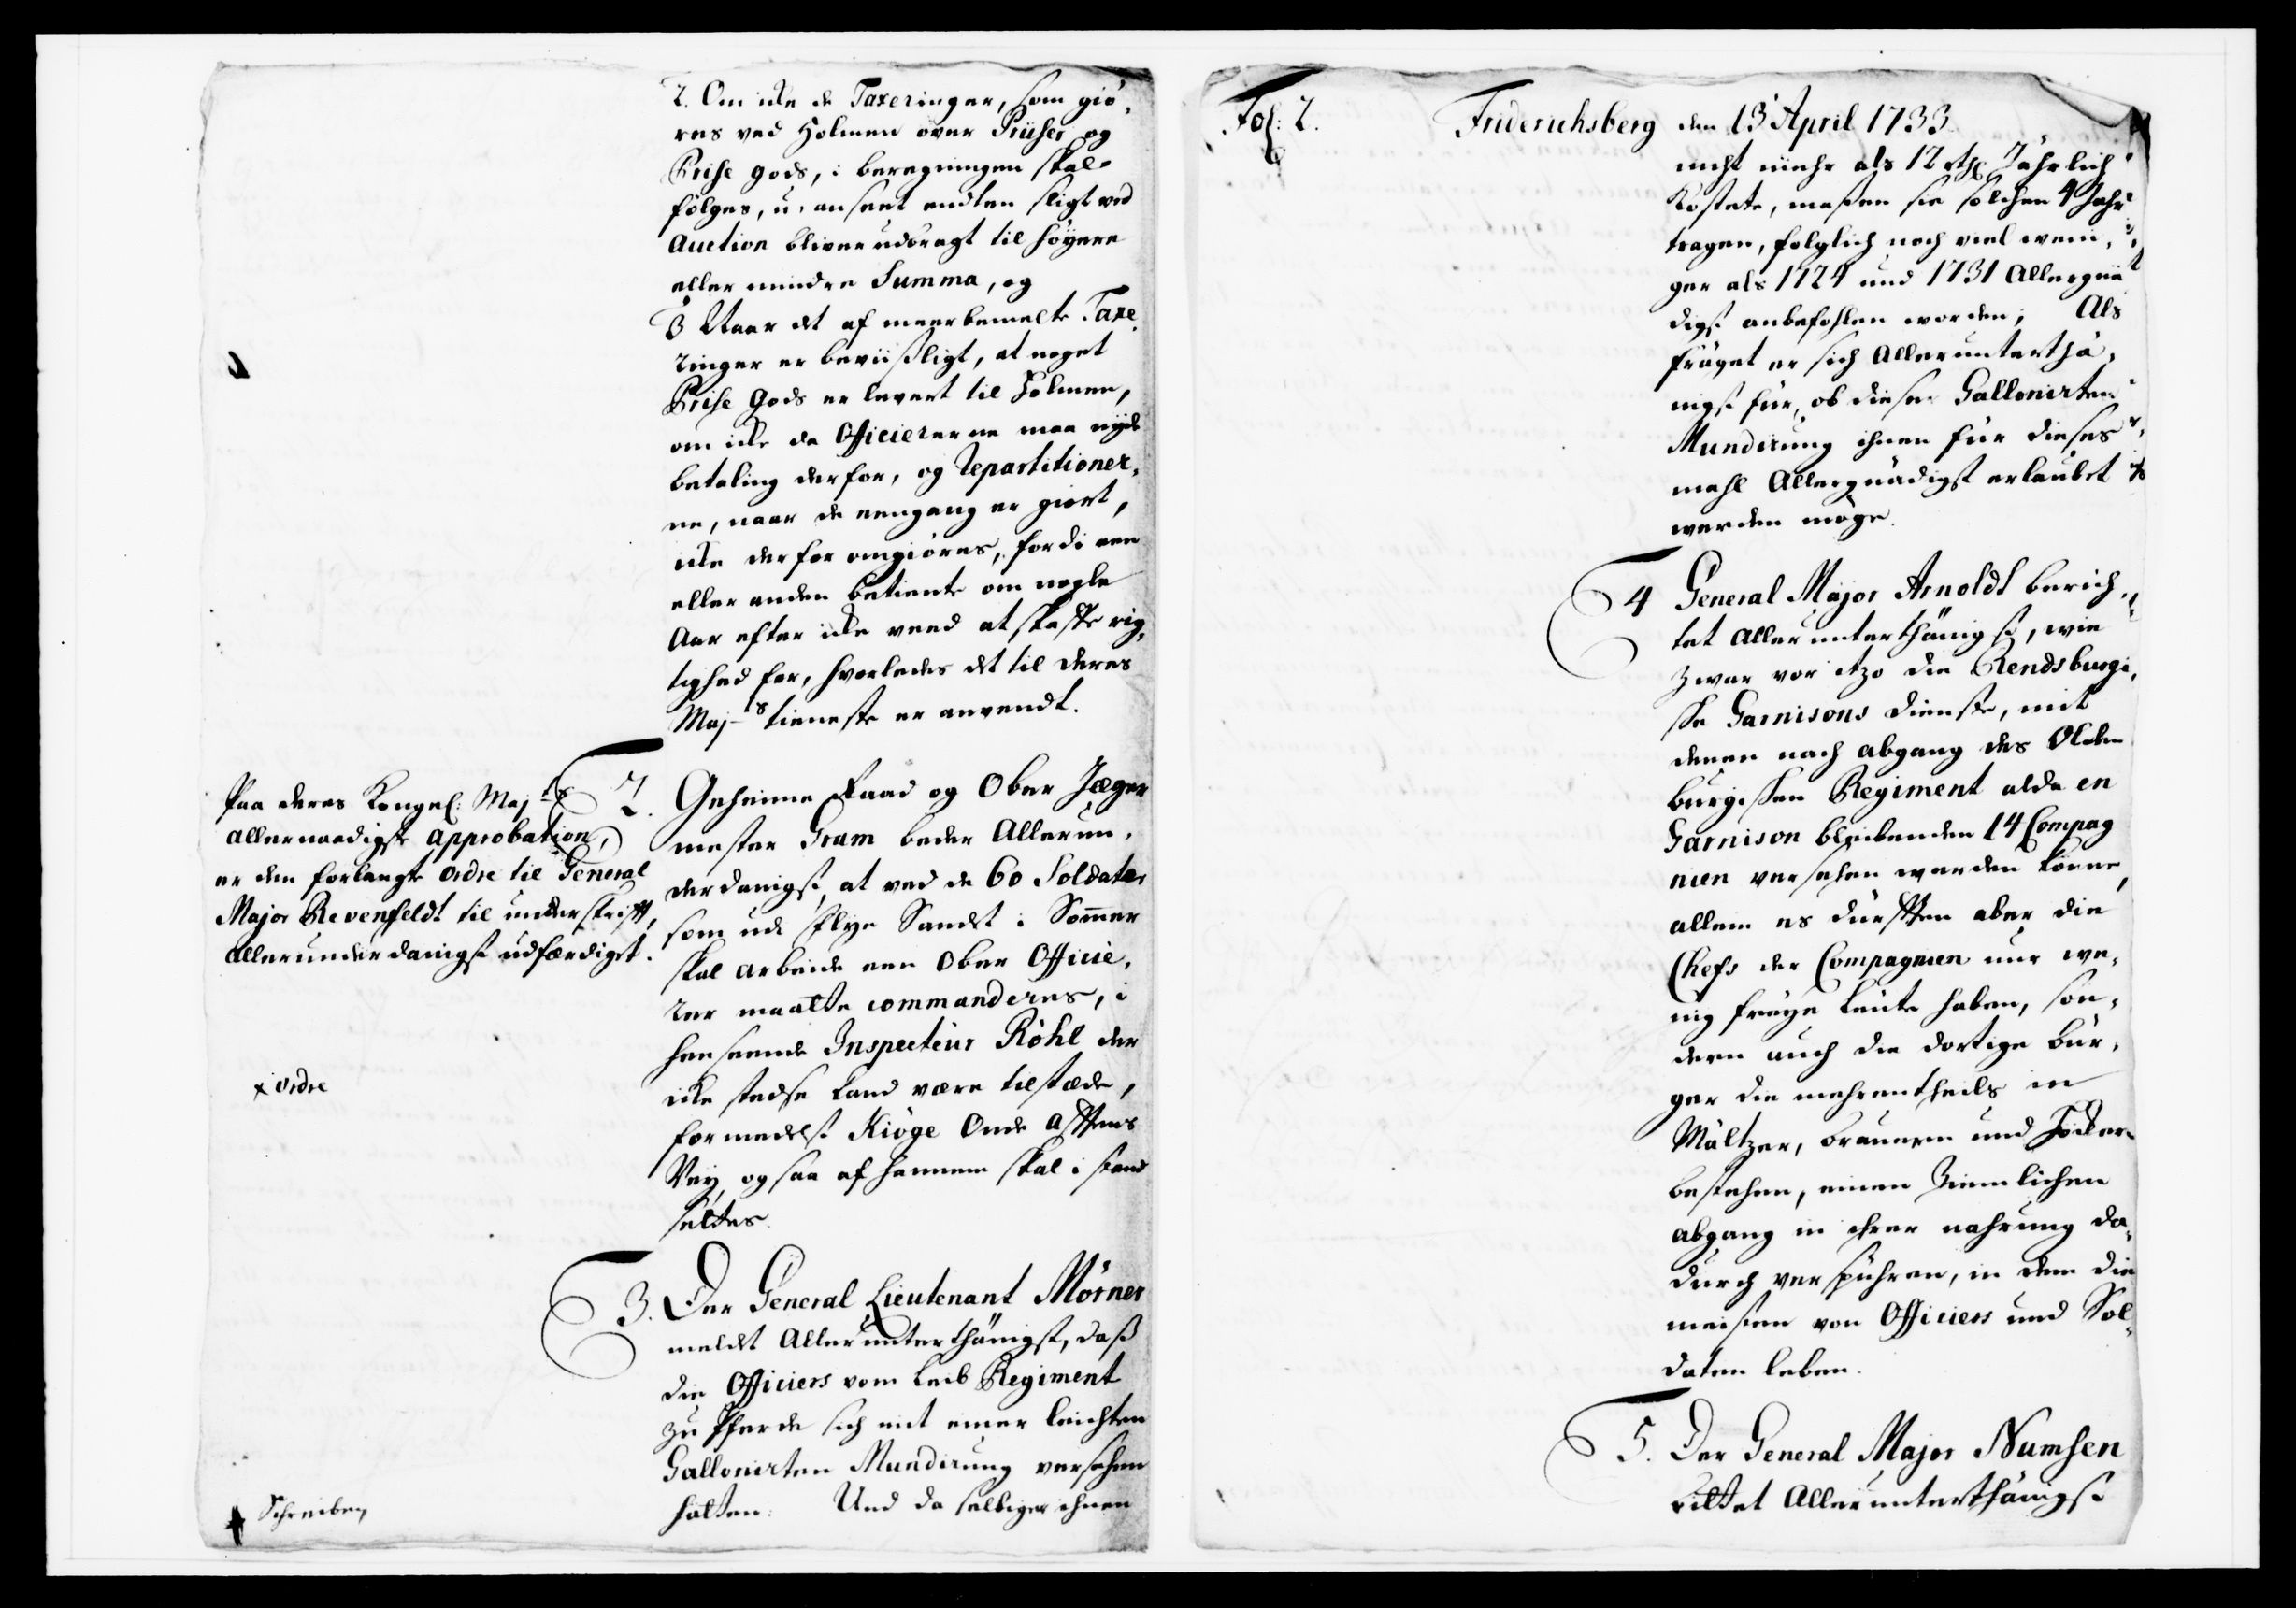 2. Om icke de Taxeringer, som giö,
res ved Holmen over Priiser og
Prise gods, i beregningen skal
fölges, u-anseet endten sligt ved
Auction bliver udbragt til höyere
eller mindre Summa, og
3 Naar det af meerbemelte Taxe,
ringer er beviißligt, at noget
Prise Gods er levert til Holmen,
om icke da Officiererne maa nyde
betaling derfor, og Repartitioner,
ne, naar de eengang er giort,
icke derfor omgiöres, fordi een
eller anden betiente om nogle
Aar efter icke veed at skaffe rig,
tighed for, hvorledes det til Deres
Majts tieneste er anvendt.
Paa Deres Kongel: Majts
allernaadigste approbation,
er den forlangte Ordre til General
Major Revenfeldt til underskrifft,
allerunderdanigst udfærdiget.
2. Geheime Raad og Ober Jæger
mester Gram beder Allerun,
derdanigst, at ved de 60 Soldater
som ude Flye Sandet i Sommer
skal arbeide een Ober Officie,
rer maatte commanderes, i
henseende Inspecteur Röhl der
icke stedse kand være tilstæde,
formedelst Kiöge Onde Asstens
Vey, ogsaa af hannem skal i stand
settes.
x Ordre
3. Der General Lieutenant Mörner
meldet Allerunterthänigst, daß
die Officiers vom Leib Regiment
zu Pferde sich mit einer leichten
Gallonirten Mundirung versehen
hätten: Und da selbiger ihnen
Schreiben
Fol: 2.
Friderichsberg den 13 April 1733.
nicht mehr als 12 rthl Jährlich
Kostete, maßen sie solchen 4 Jahr
tragen, folglich noch viel weni,
ger als 1724 und 1731 Allergnä
digst anbefohlen worden; Als
fräget er sich Allerunterthä,
nigst für, ob diese Gallonirten
Mundirung ihnen für dieses
mahl Allergnädigst erlaubet
werden möge.
4 General Major Arnoldt berich,
tet allerunterthänigst, wie
zwar vor itzo die Rendsburgi,
sche Garnisons Dienste, mit
denen nach abgang des Olden
burgischen Regiment alda en
Garnison bleibenden 14 Compag
nien versehen werden könne,
allein es dürfften aber die
Chefs der Compagnien nur we,
nig freye Leute haben, son,
dern auch die dortige Bür,
ger die mehrentheils in
Mältzer, Brauern und Höcker
bestehen, einen Ziemlichen
abgang in ihrer nahrung da,
durch verspühren, in dem die
meisten von Officiers und Sol,
daten leben.
5. Der General Major Numsen
bittet Allerunterthänigst